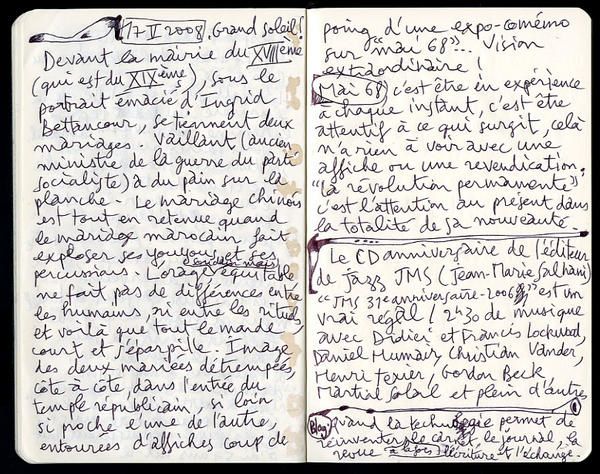 17 V 2008. Grand soleil!
Devant la mairie du XVIIIème
(qui est du XIXème), sous le
portrait émacié d'Ingrid
Bettancour, se tiennent deux
mariages. Vaillant (ancien
ministre de la guerre du parti
socialiste) à du pain sur la
planche. Le mariage chinois
est tout en retenue quand
le mariage marocain fait
exploser ses youyou et ses
percussions. L'orage équitable
ne fait pas de différences entre
les humains, ni entre les rituels,
et voilà que tout le monde
court et s'éparpille. Image
des deux mariées détrempées,
côte à côte, dans l'entrée du
temple républicain, si loin
si proche l'une de l'autre,
entourées d'affiches coup de
poing d'une expo-comémo
sur "mai 68"... Vision
extraordinaire !
Mai 68, c'est être en expérience
à chaque instant, c'est être
attentif à ce qui surgit, celà
n'a rien à voir avec une
affiche ou une revendication.
"La révolution permanente",
c'est l'attention au présent dans
la totalité de sa nouveauté.
Le CD anniversaire de l'éditeur
de jazz JMS (Jean-Marie Salhani)
"JMS 31e anniversaire-2006" est un
vrai régal / 2h30 de musique
avec Didier et Francis Lockwood,
Daniel Humair, Christian Vander,
Henri Texier, Gordon Beck
Martial Solal et plein d'autres
Blog Quand la technologie permet de
réinventer le carnet, le journal, la
revue l'écriture et l'échange.